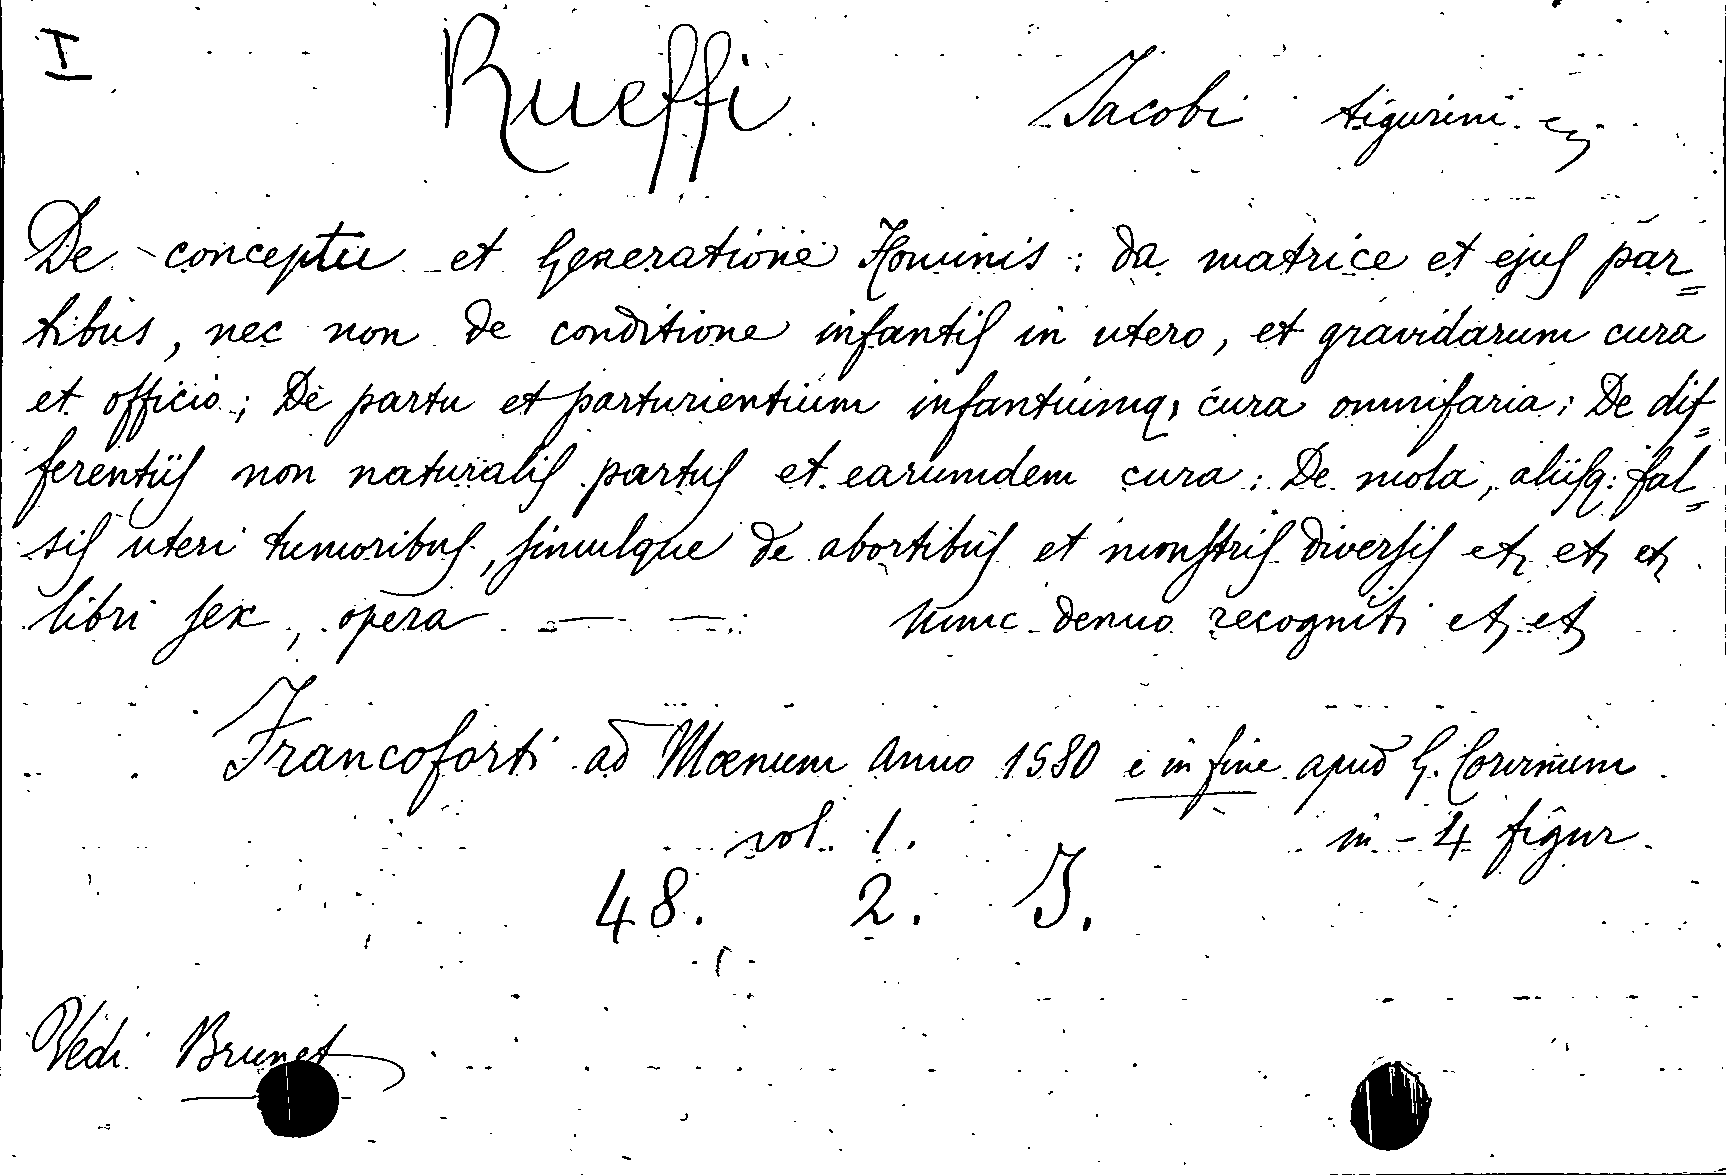 I
Rueffi Jacobi tigurini etc
De conceptu et Generatione Hominis: da matrice et ejus par=
tibus, nec non de conditione infantis in utero, et gravidarum cura
et officio; De partu et parturientium infantiumq, cura omnifaria; De dif=
ferentiis non naturalis partus et earumdem cura: De mola, aliisq: fal=
sis uteri tumoribus, simulque de abortibus et monstris diversis etc etc etc
libri sex, opera — — nunc denuo recogniti etc etc
Francoforti ad Mœnum Anno 1580 e in fine apud G. Corvinum
vol. 1. in-4 figur.
48. 2. J.
Vedi Brunet